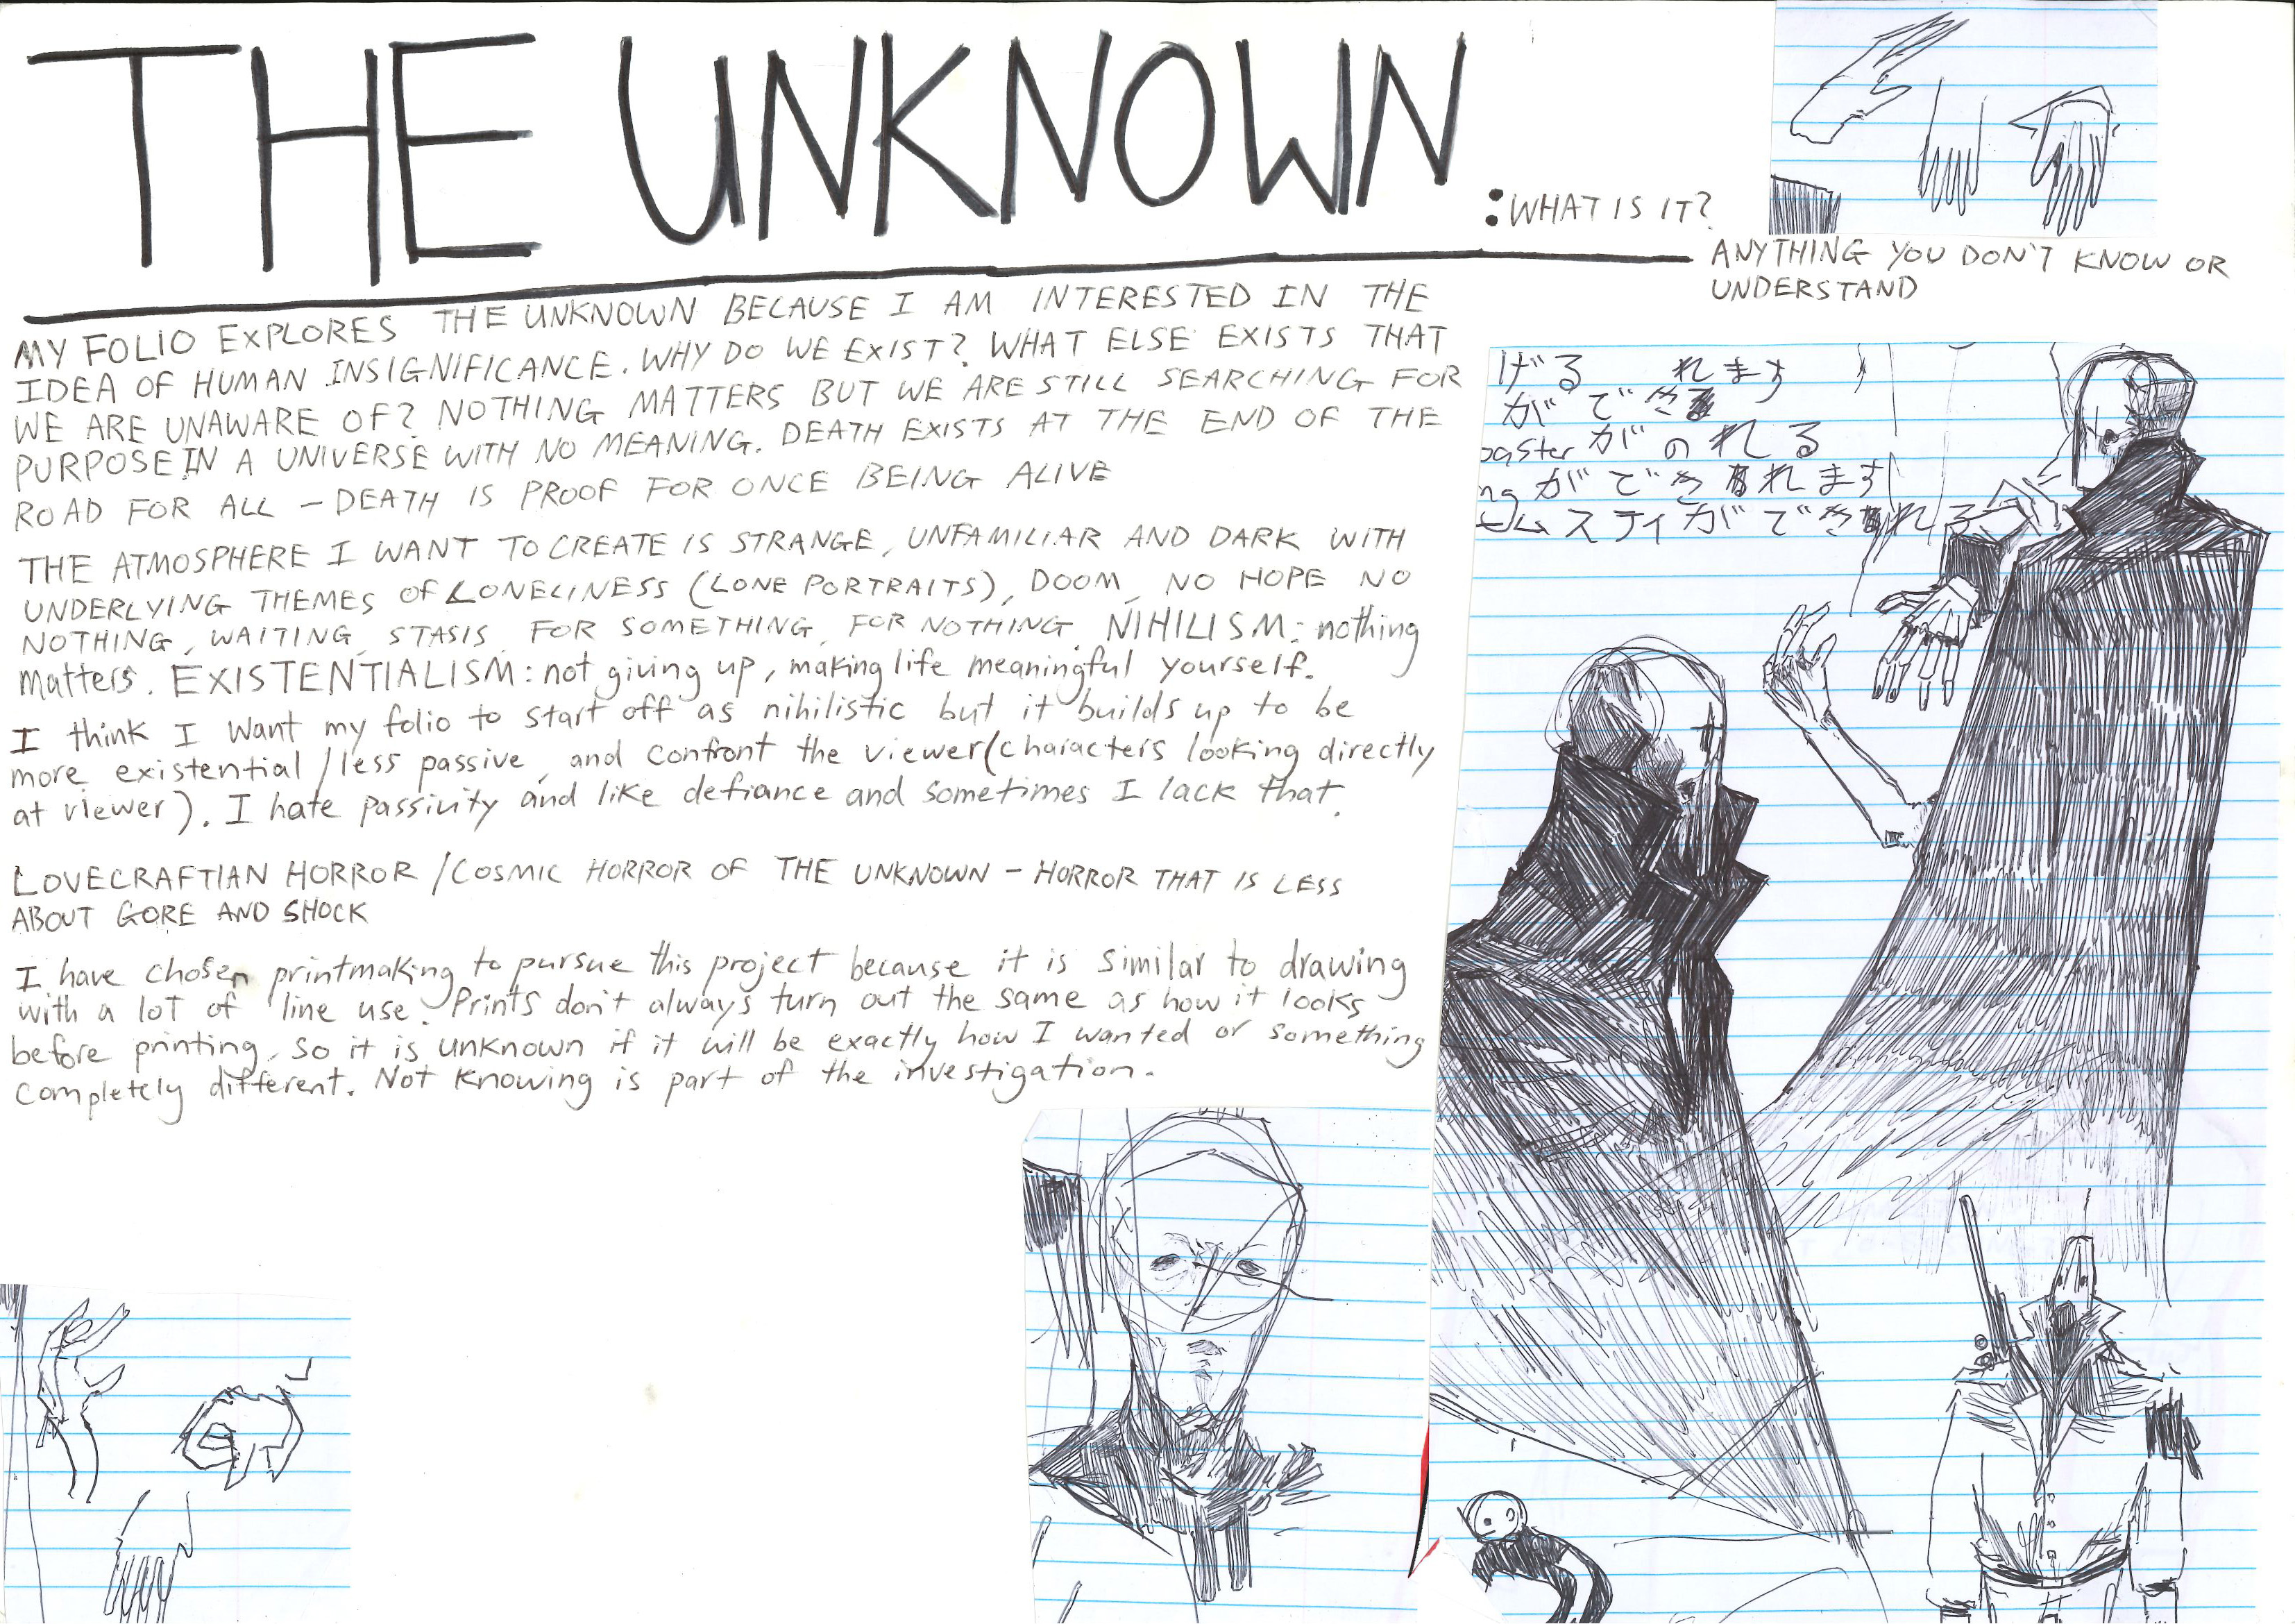 THE UNKNOWN
: WHAT IS IT?
ANYTHING YOU DON'T KNOW OR
UNDERSTAND
MY FOLIO EXPLORES THE UNKNOWN BECAUSE I AM INTERESTED IN THE
IDEA OF HUMAN INSIGNIFICANCE. WHY DO WE EXIST? WHAT ELSE EXISTS THAT
WE ARE UNAWARE OF? NOTHING MATTERS BUT WE ARE STILL SEARCHING FOR
PURPOSE IN A UNIVERSE WITH NO MEANING. DEATH EXISTS AT THE END OF THE
ROAD FOR ALL – DEATH IS PROOF FOR ONCE BEING ALIVE
THE ATMOSPHERE I WANT TO CREATE IS STRANGE, UNFAMILIAR AND DARK WITH
UNDERLYING THEMES OF LONELINESS (LONE PORTRAITS), DOOM, NO HOPE NO
NOTHING, WAITING, STASIS, FOR SOMETHING, FOR NOTHING. NIHILISM: nothing
matters. EXISTENTIALISM: not giving up, making life meaningful yourself.
I think I want my folio to start off as nihilistic but it builds up to be
more existential/less passive, and confront the viewer (characters looking directly
at viewer). I hate passivity and like defiance and sometimes I lack that.
LOVECRAFTIAN HORROR/COSMIC HORROR OF THE UNKNOWN – HORROR THAT IS LESS
ABOUT GORE AND SHOCK
I have chosen printmaking to pursue this project because it is similar to drawing
with a lot of line use. Prints don't always turn out the same as how it looks
before printing, so it is unknown if it will be exactly how I wanted or something
completely different. Not knowing is part of the investigation.
げる れます
ができる
oasterがのれる
ngができれます
ムスティができれる